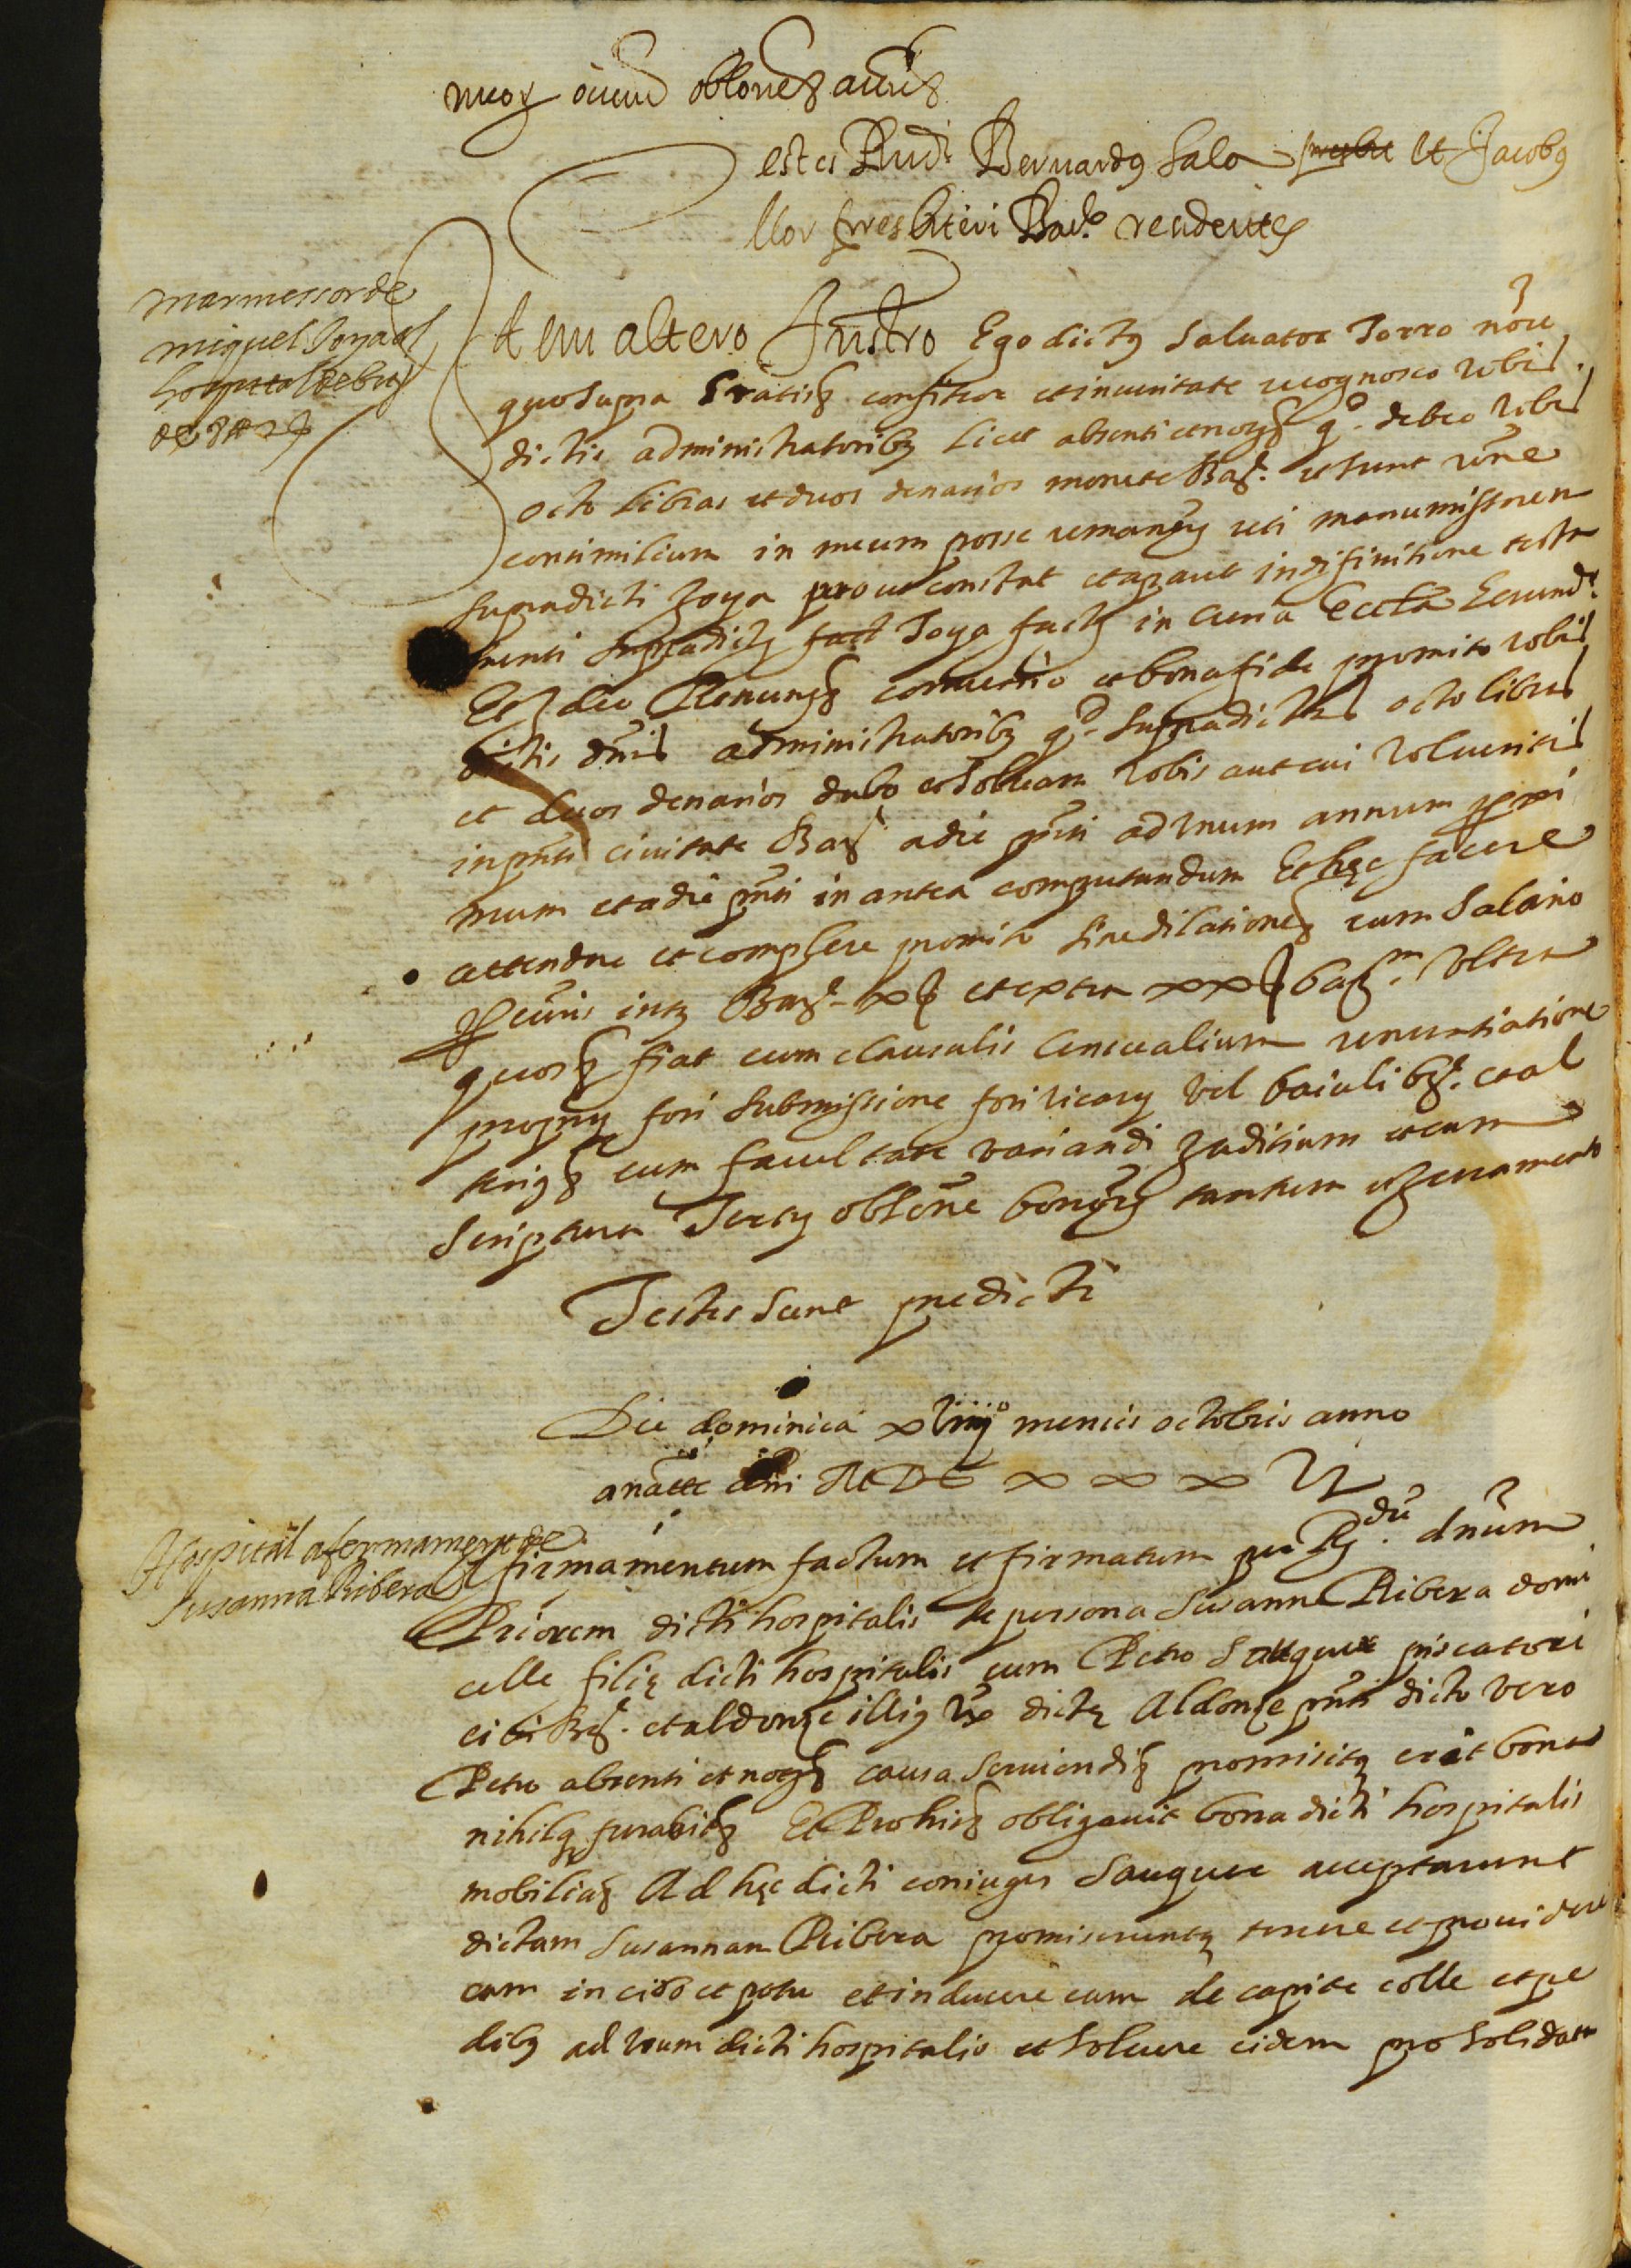 meor oiuū oblones acius
estes Rudi Bernardus Sala presbr et Jacobus
llor presbiteri Bar.e residentes
marmessor de
miquel Joya al
hospital debitr
de 8 ₶ 2 d
Item altero Instro Ego dictus Saluator Torro noīe
quo supra Gratis confiteor et in ueritate recognosco vobis
dictis administratoribus licet absenti et nots q.o debeo vobis
octo libras et duos denarios monete Bars. et sunt
consimilium in meum posse remans uti manumissorem
supradicti Joya prout constat et apaut in difinitione testa
menti supradicti fact Joya facts in curia Eccta Gerund.
Et deo Renuns conuenio et bona fide promito vobis
dictis dnis administratoribus q.d supradictas octo libras
et duos denarios dabo et soluam vobis aut cui volueritis
in pnti ciuitate Bars a die pnti ad vnum annum proxi
mum et a die pnti in antea computandum Et hęc facere
attendere et complere promito sine dilatione cum salario
procuris intus Bars. x s et extra xx s bars.m vltra
quos fiat cum clausulis censualium renuntiatione
proprii fori submissione fori vicarij vel baiuli bs. et al
terius cum facultate variandi juditium et cum
scriptura Tertij oblone bonors tantum et juramento
Testes sunt predicti
Die dominica xviiijo mensis octobris anno
a natte dni MDC x x x VI
Hospital afermament de
Susanna Ribera
firmamentum factum et firmatum per Rdū. dnūm
Priorem dicti hospitalis de persona Susanne Ribera domi
celle filię dicti hospitalis cum Petro Sauguer piscatori
ci Bs. et aldonçe illius vx dictę Aldonçe pnti dicto vero
Petro absenti et nots causa seruiendi promisitq erit bona
nihilq furabit Et Pro his obligauit bona dicti hospitalis
mobilia Ad hęc dicti coniuges Sauguer acceptarunt
dictam Susannam Ribera promiseruntq tenere et prouidere
eam in cibo et potu et inducere eam de capite colle et pe
dibus ad vsum dicti hospitalis et soluere eidem pro solidata